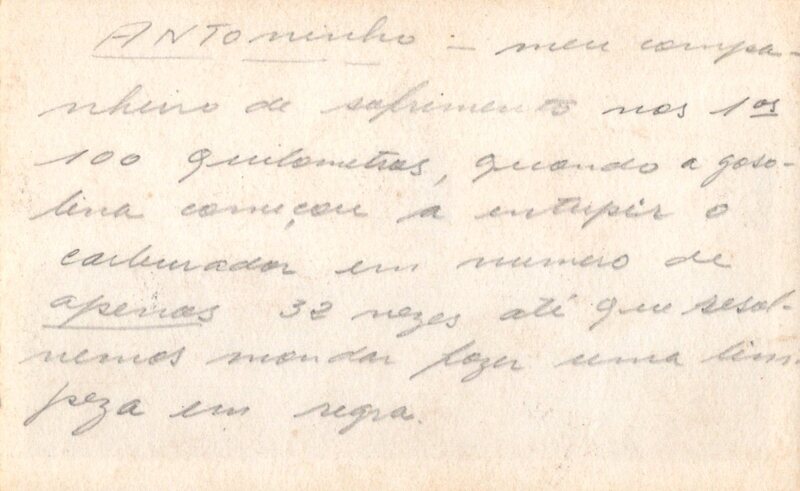 ANTONinho - meu compa-
nheiro de sofrimento nos 1os
100 quilometros, quando a gaso-
lina começou a entupir o
carburador em numero de
apenas 32 vezes até que resol-
vemos mandar fazer uma lim-
peza em regra.